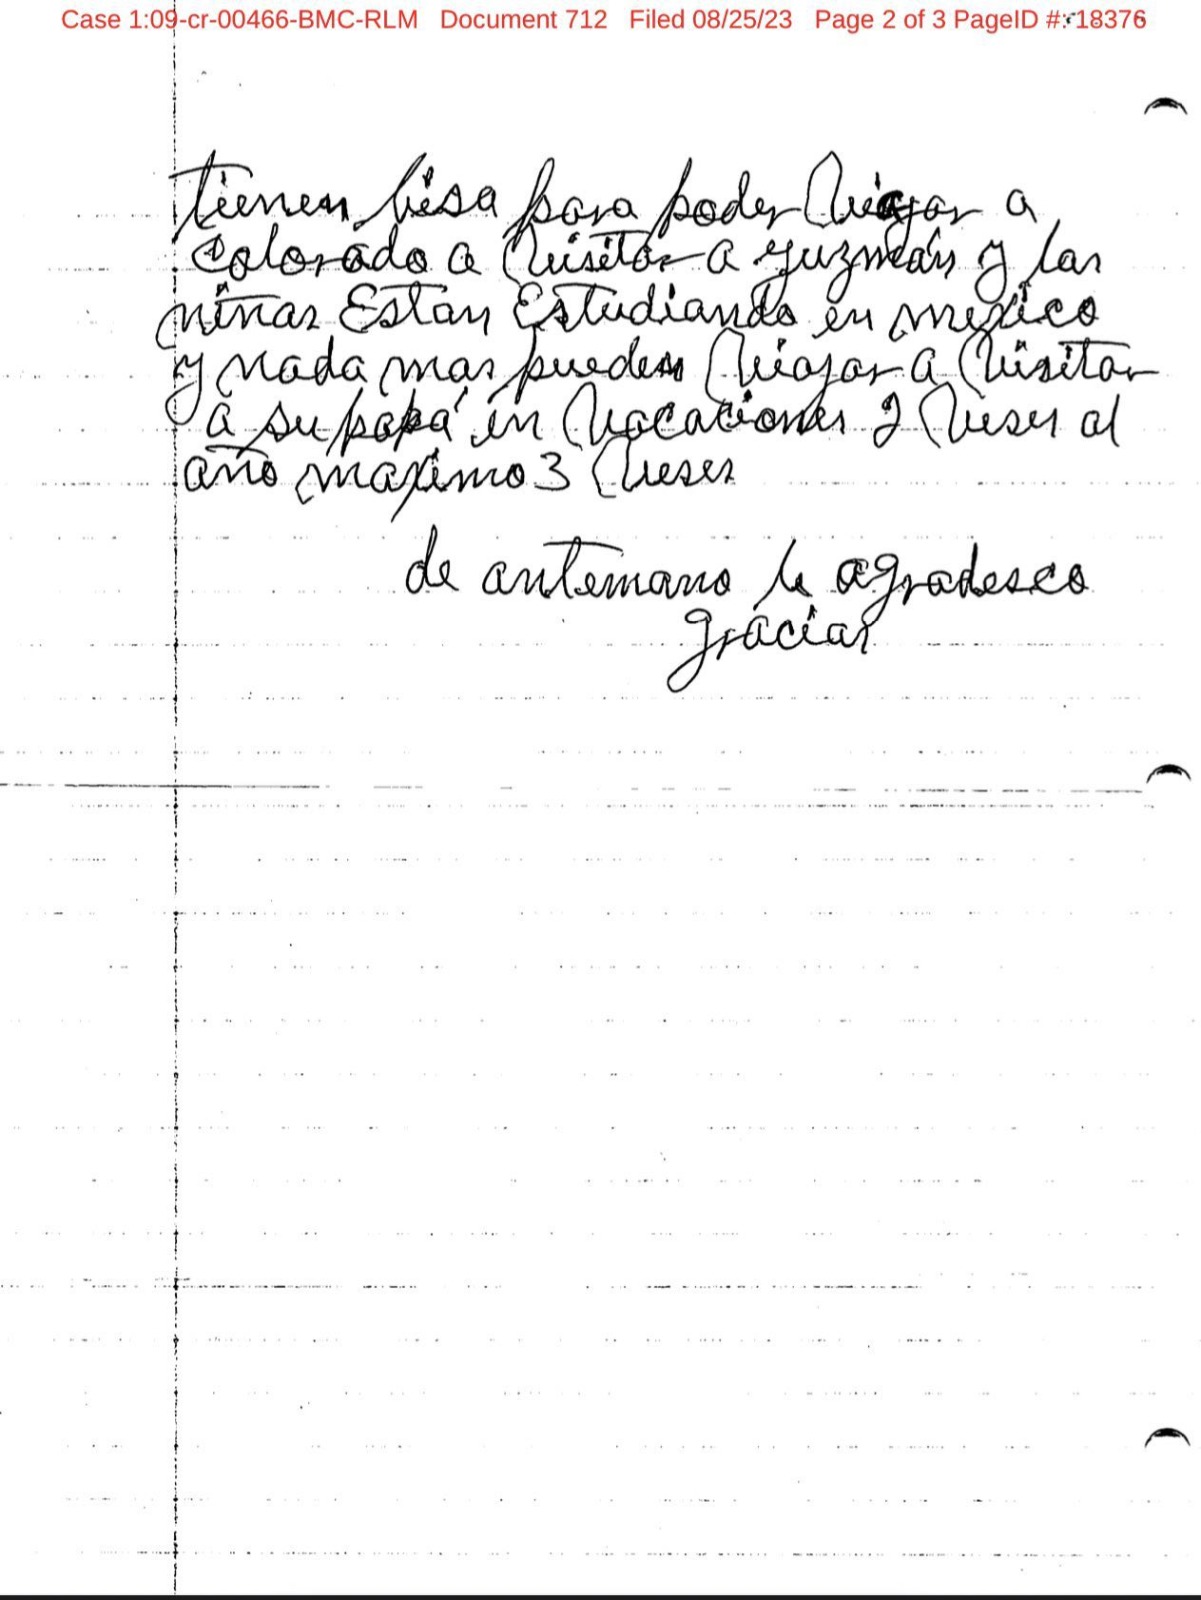 Case 1:09-cr-00466-BMC-RLM Document 712 Filed 08/25/23 Page 2 of 3 PageID #: 18376
tienen bisa para poder Viajar a
Colorado a Visitar a guzmán y las
niñas Estan Estudiando en mexico
y nada mas pueden Viajar a Visitar
a su papá en Vacaciones 2 Veses al
año maximo 3 Veses
de antemano le agradesco
gracias